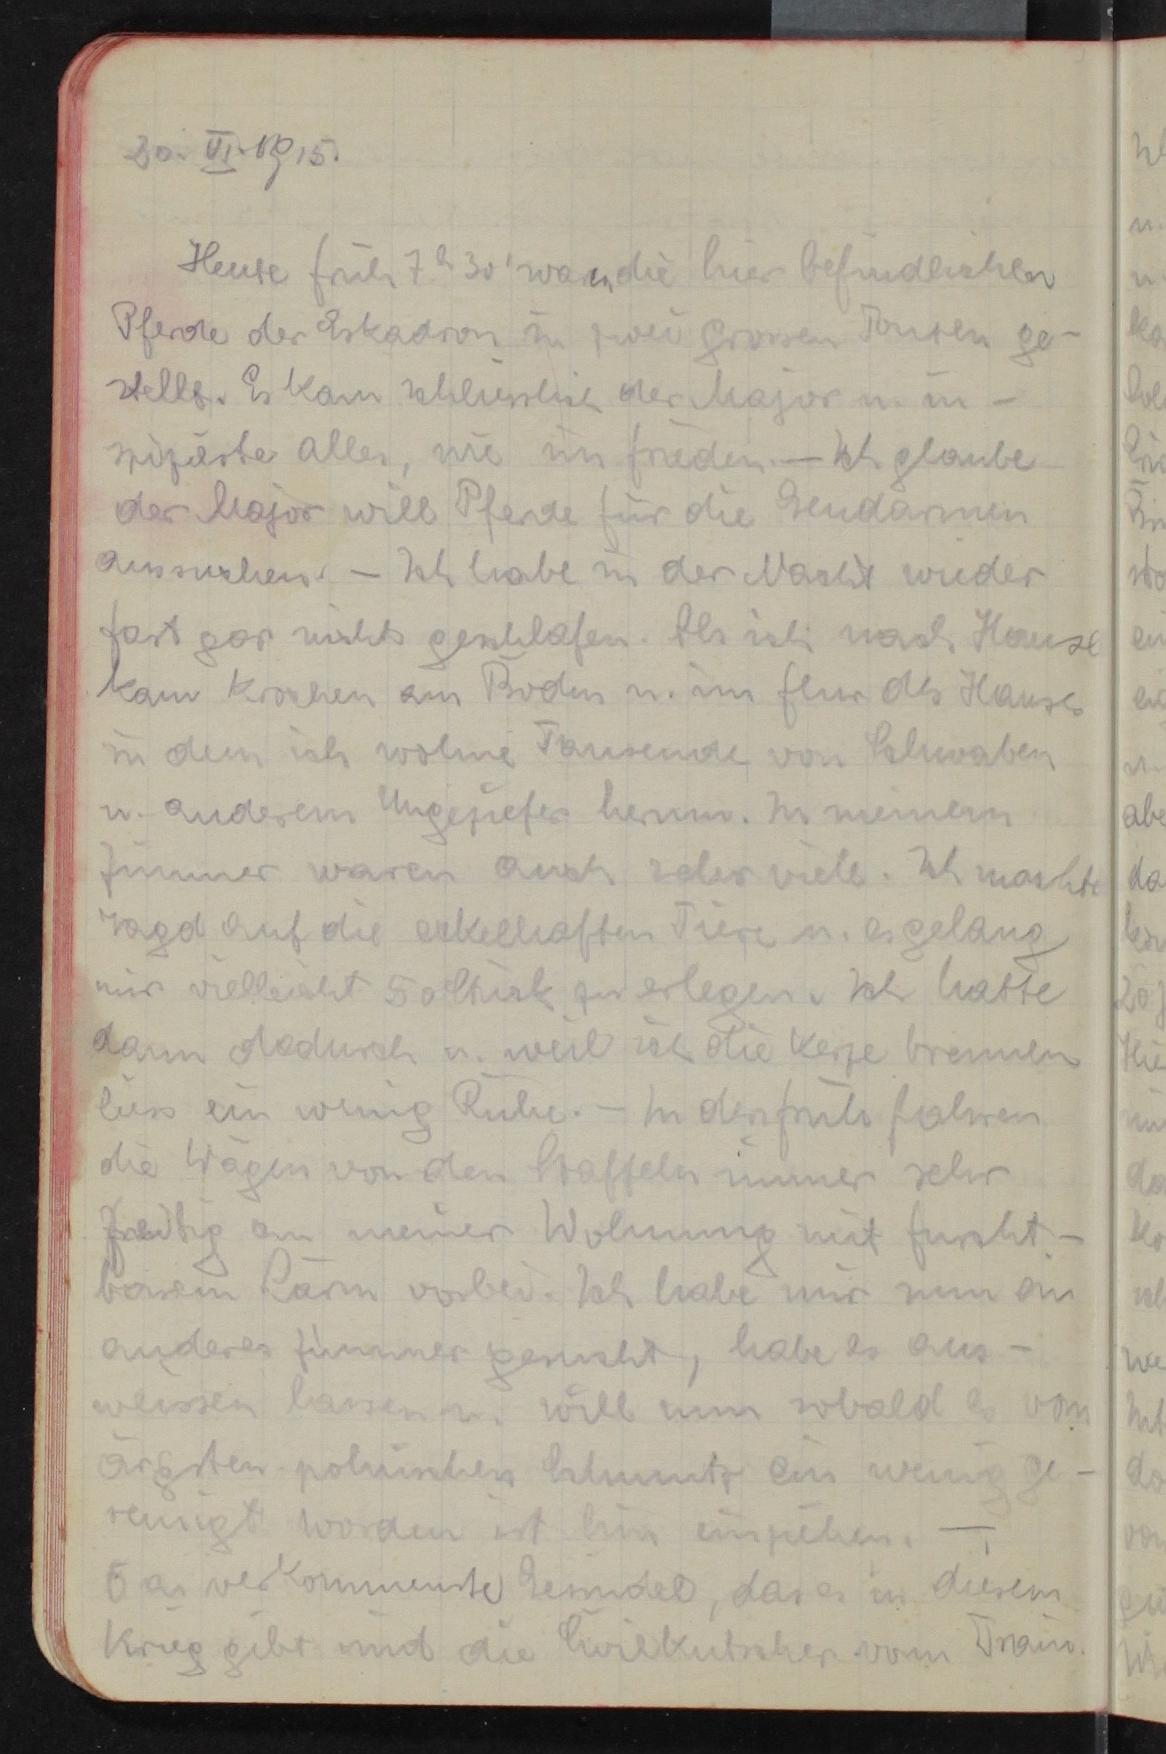 30. VI. 1915.
Heute früh 7h 30' waren die hier befindlichen
Pferde der Eskadron in zwei grossen Touren ge-
stellt. Es kam schliesslich der Major u. in-
spizierte alles, wie im frieden. — Ich glaube
der Major will Pferde für die Gendarmen
aussuchen. — Ich habe in der Nacht wieder
fast gar nichts geschlafen. Als ich nach Hause
kam krochen am Boden u. im flur des Hauses
in dem ich wohne Tausende von Schwaben
u. anderem Ungeziefer herum. In meinem
Zimmer waren auch sehr viele. Ich machte
Jagd auf die eckelhaften Tiere u. es gelang
mir vielleicht 50 Stück zu erlegen. Ich hatte
dann dadurch u. weil ich die Kerze brennen
liess ein wenig Ruhe. — In der früh fahren
die Wägen von den Staffeln immer sehr
zeitig an meiner Wohnung mit furcht-
barem Lärm vorbei. Ich habe mir nun ein
anderes Zimmer gesucht, habe es aus-
weissen lassen u. will nun sobald es vom
ärgsten polnischen Schmutz ein wenig ge-
reinigt worden ist hin einziehen. —
Das verkommenste Gesindel, das es in diesem
Krieg gibt sind die Civilkutscher vom Train.